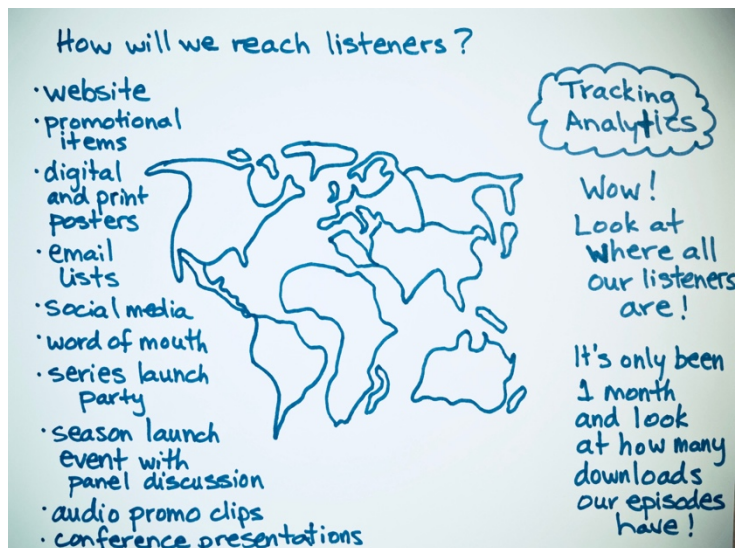 How will we reach listeners?
· website
· promotional
items
· digital
and print
posters
· email
lists
· social media
· word of mouth
· series launch
party
· season launch
event with
panel discussion
· audio promo clips
· conference presentations
Tracking
Analytics
Wow!
Look at
where all
our listeners
are!
It's only been
1 month
and look
at how many
downloads
our episodes
have!